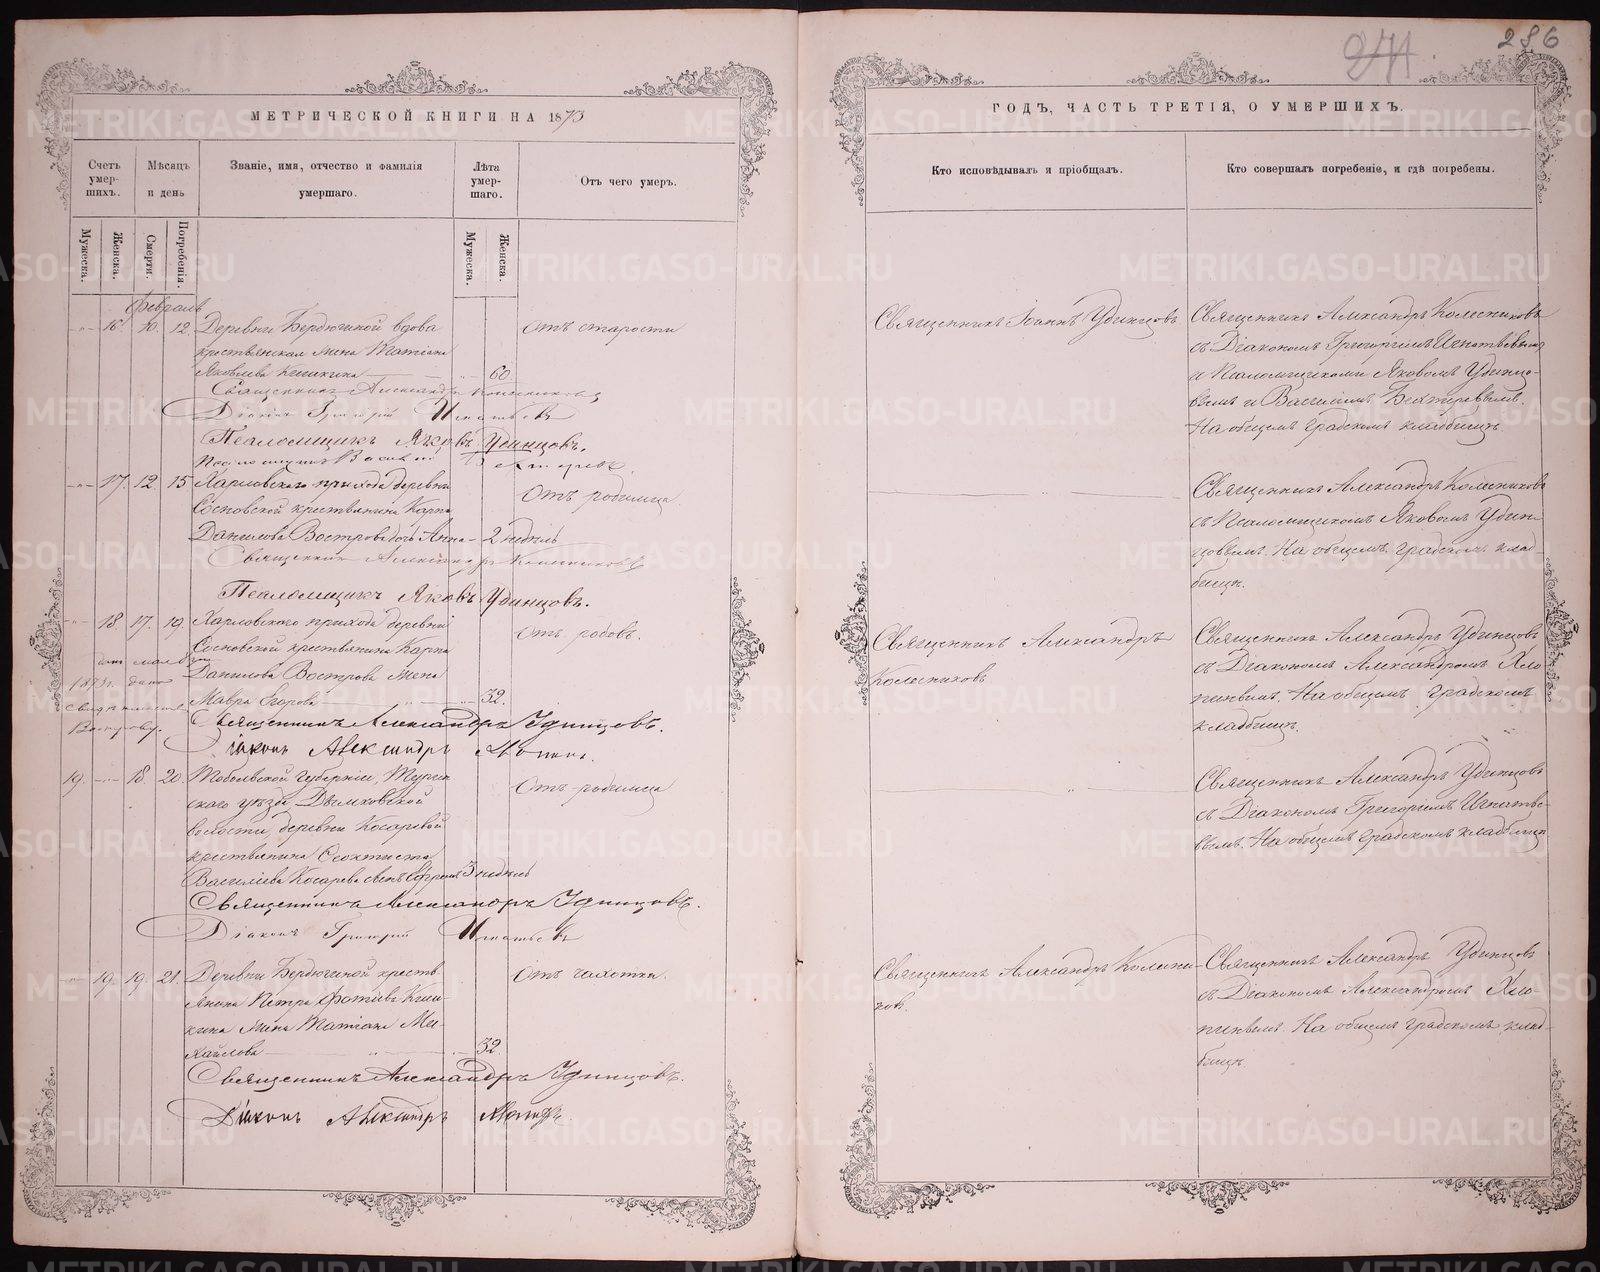 274.
286
МЕТРИЧЕСКОЙ КНИГИ НА 1873
Счетъ умер-шихъ.
Мѣсяцъ и день
Званіе, имя, отчество и фамилія умершаго.
Лѣта умер-шаго.
Отъ чего умеръ.
Мужеска.
Женска.
Смерти.
Погребенія.
Мужеска.
Женска.
Февраль
16. 10. 12. Деревни Бердюгиной вдова
крестьянская жена Татіана
Яковлева 60
Священникъ Александръ Колесниковъ
Діаконъ Григорій Игнатьевъ
Псаломщикъ Яковъ Удинцовъ.
Псаломщикъ Василій Бехтеревъ.
Отъ старости
17. 12. 15 Харловскаго прихода деревни
Сосновской крестьянина Карпа
Данилова Вострова дочь Анна 2 недѣль
Священникъ Александръ Колесниковъ
Псаломщикъ Яковъ Удинцовъ.
Отъ родимца
18. 17. 19. Харловскаго прихода деревни
Сосновской крестьянина Карпа
Данилова Вострова жена
Мавра Егорова 32.
1873 г. дано
свидѣтельство
Вострову.
Священникъ Александръ Удинцовъ.
Діаконъ Александръ
Отъ родовъ.
19. 18. 20. Тобольской губерніи, Турин-
скаго уѣзда,
волости, деревни Косаревой
крестьянина Ѳеоктиста
Василіева Косарева сынъ Ефремъ 3 недѣль
Священникъ Александръ Удинцовъ.
Діаконъ Григорій Игнатьевъ
Отъ родимца
19. 19. 21. Деревни Бердюгиной кресть-
янина Петра Фотіева
жена Татіана Ми-
хайлова 32.
Священникъ Александръ Удинцовъ.
Діаконъ Александръ
Отъ чахотки.
ГОДЪ, ЧАСТЬ ТРЕТІЯ, О УМЕРШИХЪ.
Кто исповѣдывалъ и пріобщалъ.
Кто совершалъ погребеніе, и гдѣ погребены.
Священникъ Іоаннъ Удинцовъ
Священникъ Александръ Колесниковъ
съ Діакономъ Григоріемъ Игнатьевымъ
и Псаломщиками Яковомъ Удинцо-
вымъ и Василіемъ Бехтеревымъ.
На общемъ градскомъ кладбищѣ.
Священникъ Александръ Колесниковъ
съ Псаломщикомъ Яковомъ Удин-
цовымъ. На общемъ градскомъ клад-
бищѣ.
Священникъ Александръ
Колесниковъ
Священникъ Александръ Удинцовъ
съ Діакономъ Александромъ Хло-
пинымъ. На общемъ градскомъ
кладбищѣ.
Священникъ Александръ Удинцовъ
съ Діакономъ Григоріемъ Игнатье-
вымъ. На общемъ градскомъ кладбищѣ
Священникъ Александръ Колесни-
ковъ.
Священникъ Александръ Удинцовъ
съ Діакономъ Александромъ Хло-
пинымъ. На общемъ градскомъ клад-
бищѣ.
METRIKI.GASO-URAL.RU